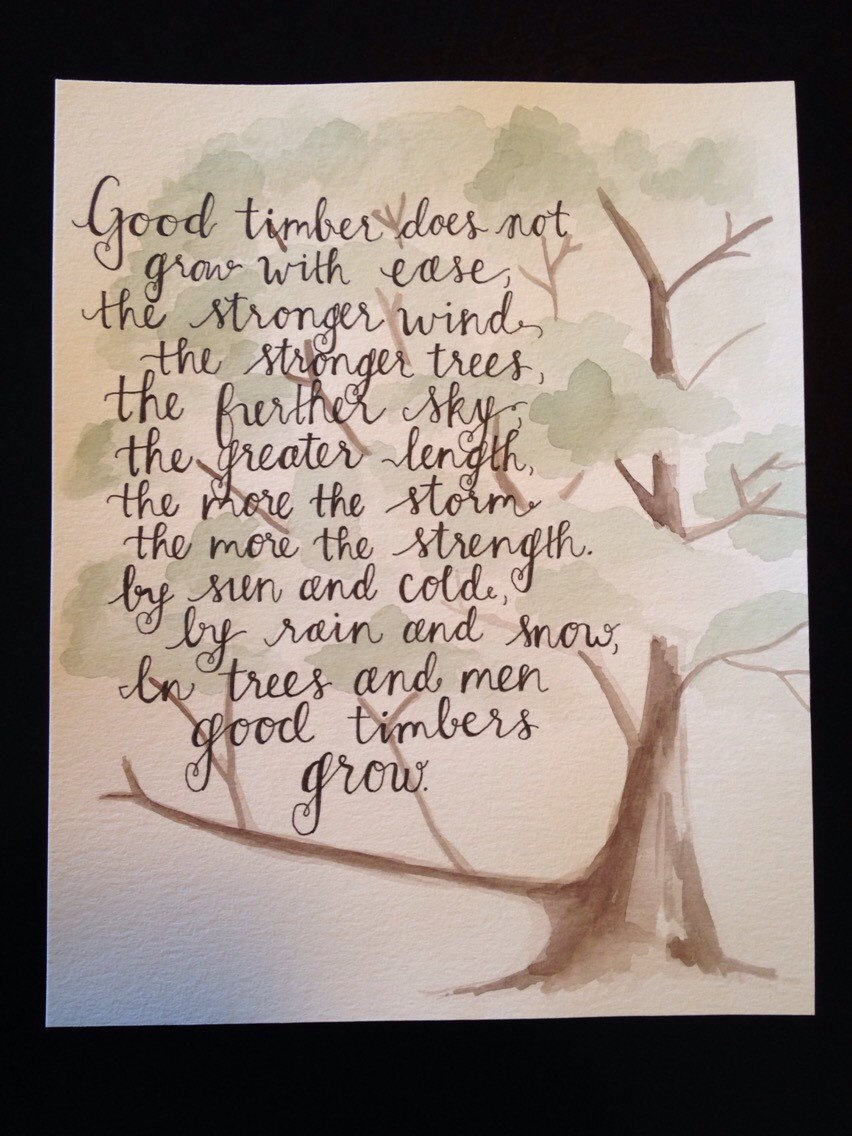 Good timber does not
grow with ease,
the stronger wind,
the stronger trees,
the further sky,
the greater length,
the more the storm
the more the strength.
by sun and cold,
by rain and snow,
In trees and men
good timbers
grow.